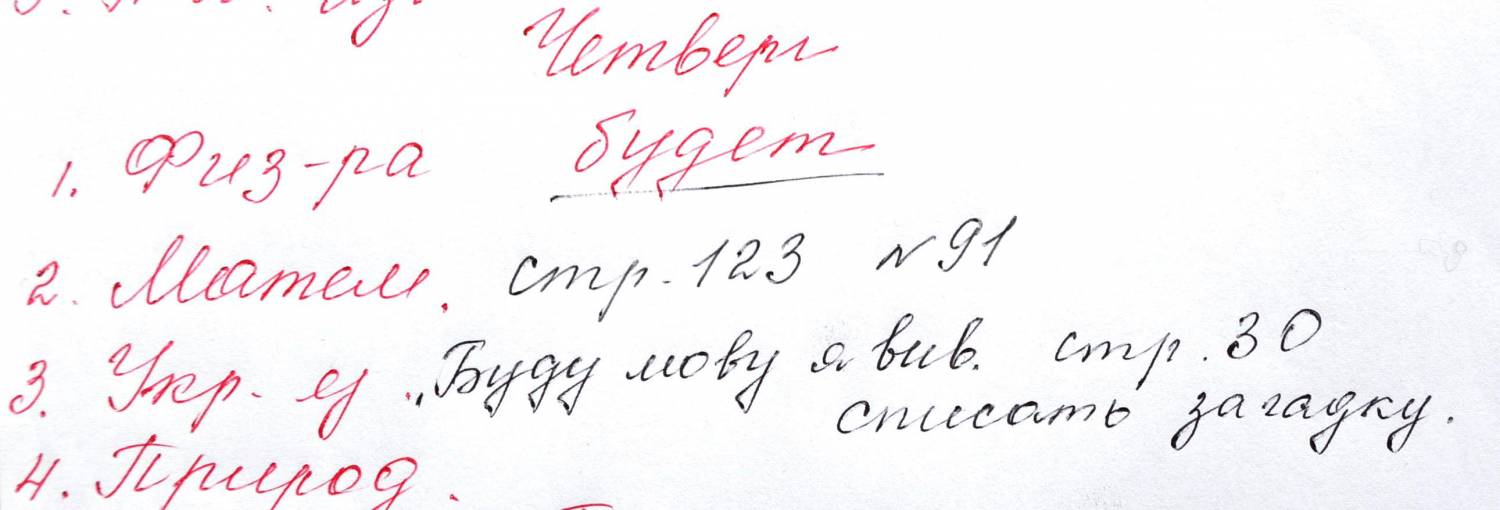 Четверг
1. Физ-ра будет
2. Матем. стр. 123 №91
3. Укр. яз. „Буду мову я вив. стр. 30
списать загадку.
4. Природ.